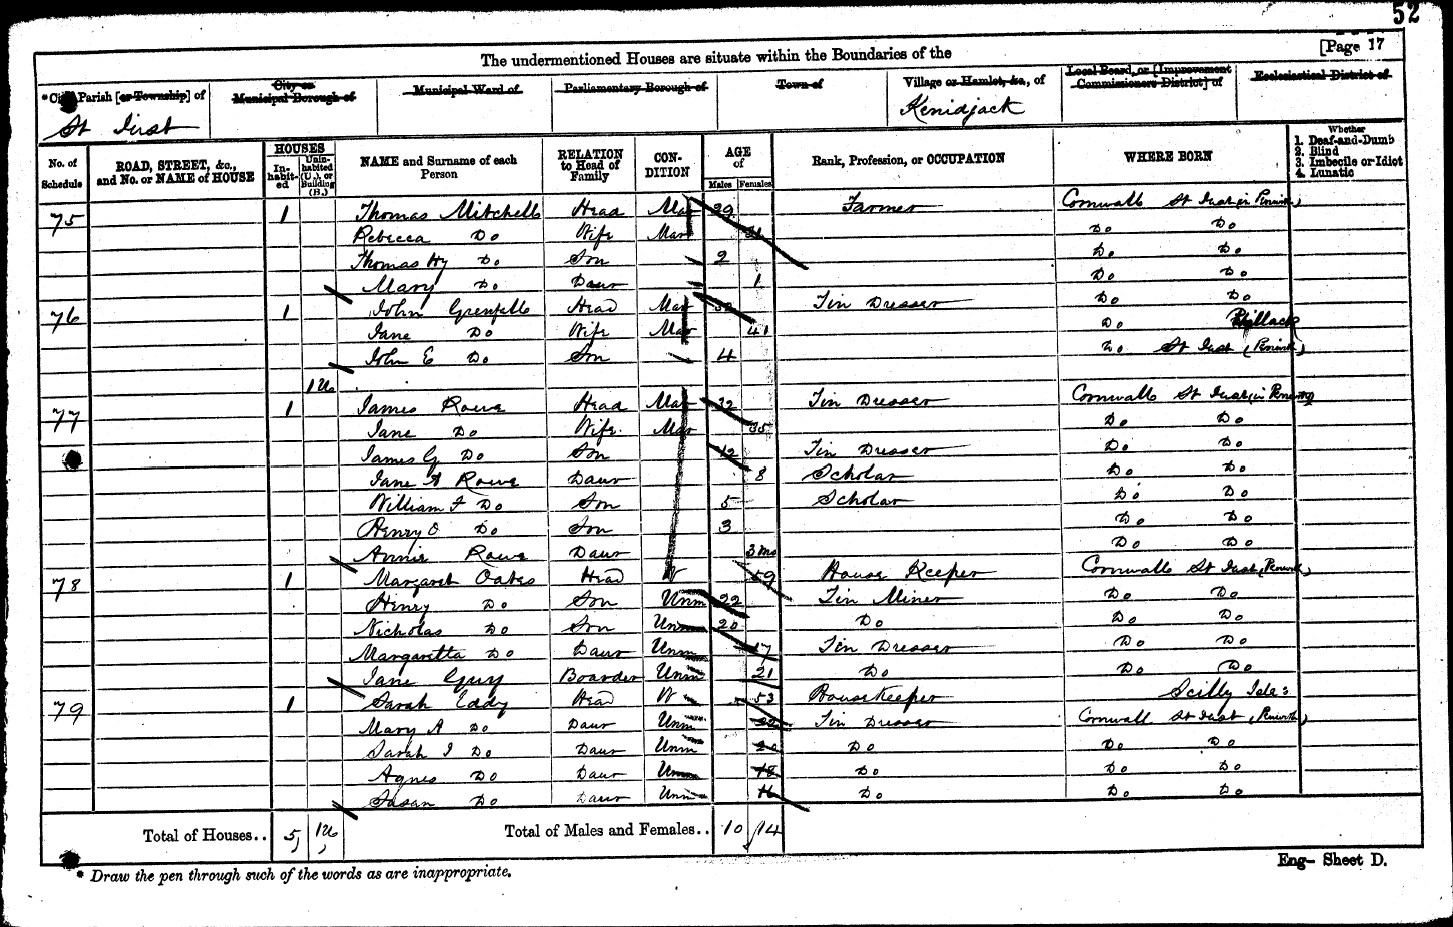 52
[Page 17
The undermentioned Houses are situate within the Boundaries of the
*Civil Parish [or Township] of
St Just
City or Municipal Borough of
Municipal Ward of
Parliamentary Borough of
Town of
Village or Hamlet, &c., of
Kenidjack
Local Board, or [Improvement Commissioners District] of
Ecclesiastical District of
No. of Schedule
ROAD, STREET, &c., and No. or NAME of HOUSE
HOUSES
In-habit-ed
Unin-habited (U.), or Building (B.)
NAME and Surname of each Person
RELATION to Head of Family
CON-DITION
AGE of
Males Females
Rank, Profession, or OCCUPATION
WHERE BORN
Whether
1. Deaf-and-Dumb
2. Blind
3. Imbecile or Idiot
4. Lunatic
75 1 Thomas Mitchell Head Mar 39 Farmer Cornwall St Just in Penwith
Rebecca Do Wife Mar Do Do
Thomas Hy Do Son 2 Do Do
Mary Do Daur 1 Do Do
76 1 John Grenfell Head Mar Tin Dresser Do Do
Jane Do Wife Mar 41 Do Phillack
John E Do Son 4 Do St Just (Penwith)
1U
77 1 James Rowe Head Mar 32 Tin Dresser Cornwall St Just in Penwith
Jane Do Wife Mar 35 Do Do
James G Do Son 12 Tin Dresser Do Do
Jane A Rowe Daur 8 Scholar Do Do
William J Do Son 5 Scholar Do Do
Henry O Do Son 3 Do Do
Annie Rowe Daur 3 mo Do Do
78 1 Margaret Oates Head W 59 House Keeper Cornwall St Just (Penwith)
Henry Do Son Unm 22 Tin Miner Do Do
Nicholas Do Son Unm 20 Do Do Do
Margaretta Do Daur Unm 17 Tin Dresser Do Do
Jane Guy Boarder Unm 21 Do Do Do
79 1 Sarah Eddy Head W 53 Housekeeper Scilly Isles
Mary A Do Daur Unm 22 Tin Dresser Cornwall St Just (Penwith)
Sarah J Do Daur Unm 20 Do Do Do
Agnes Do Daur Unm 18 Do Do Do
Susan Do Daur Unm 16 Do Do Do
Total of Houses.. 5 1U Total of Males and Females.. 10 14
Eng— Sheet D.
* Draw the pen through such of the words as are inappropriate.